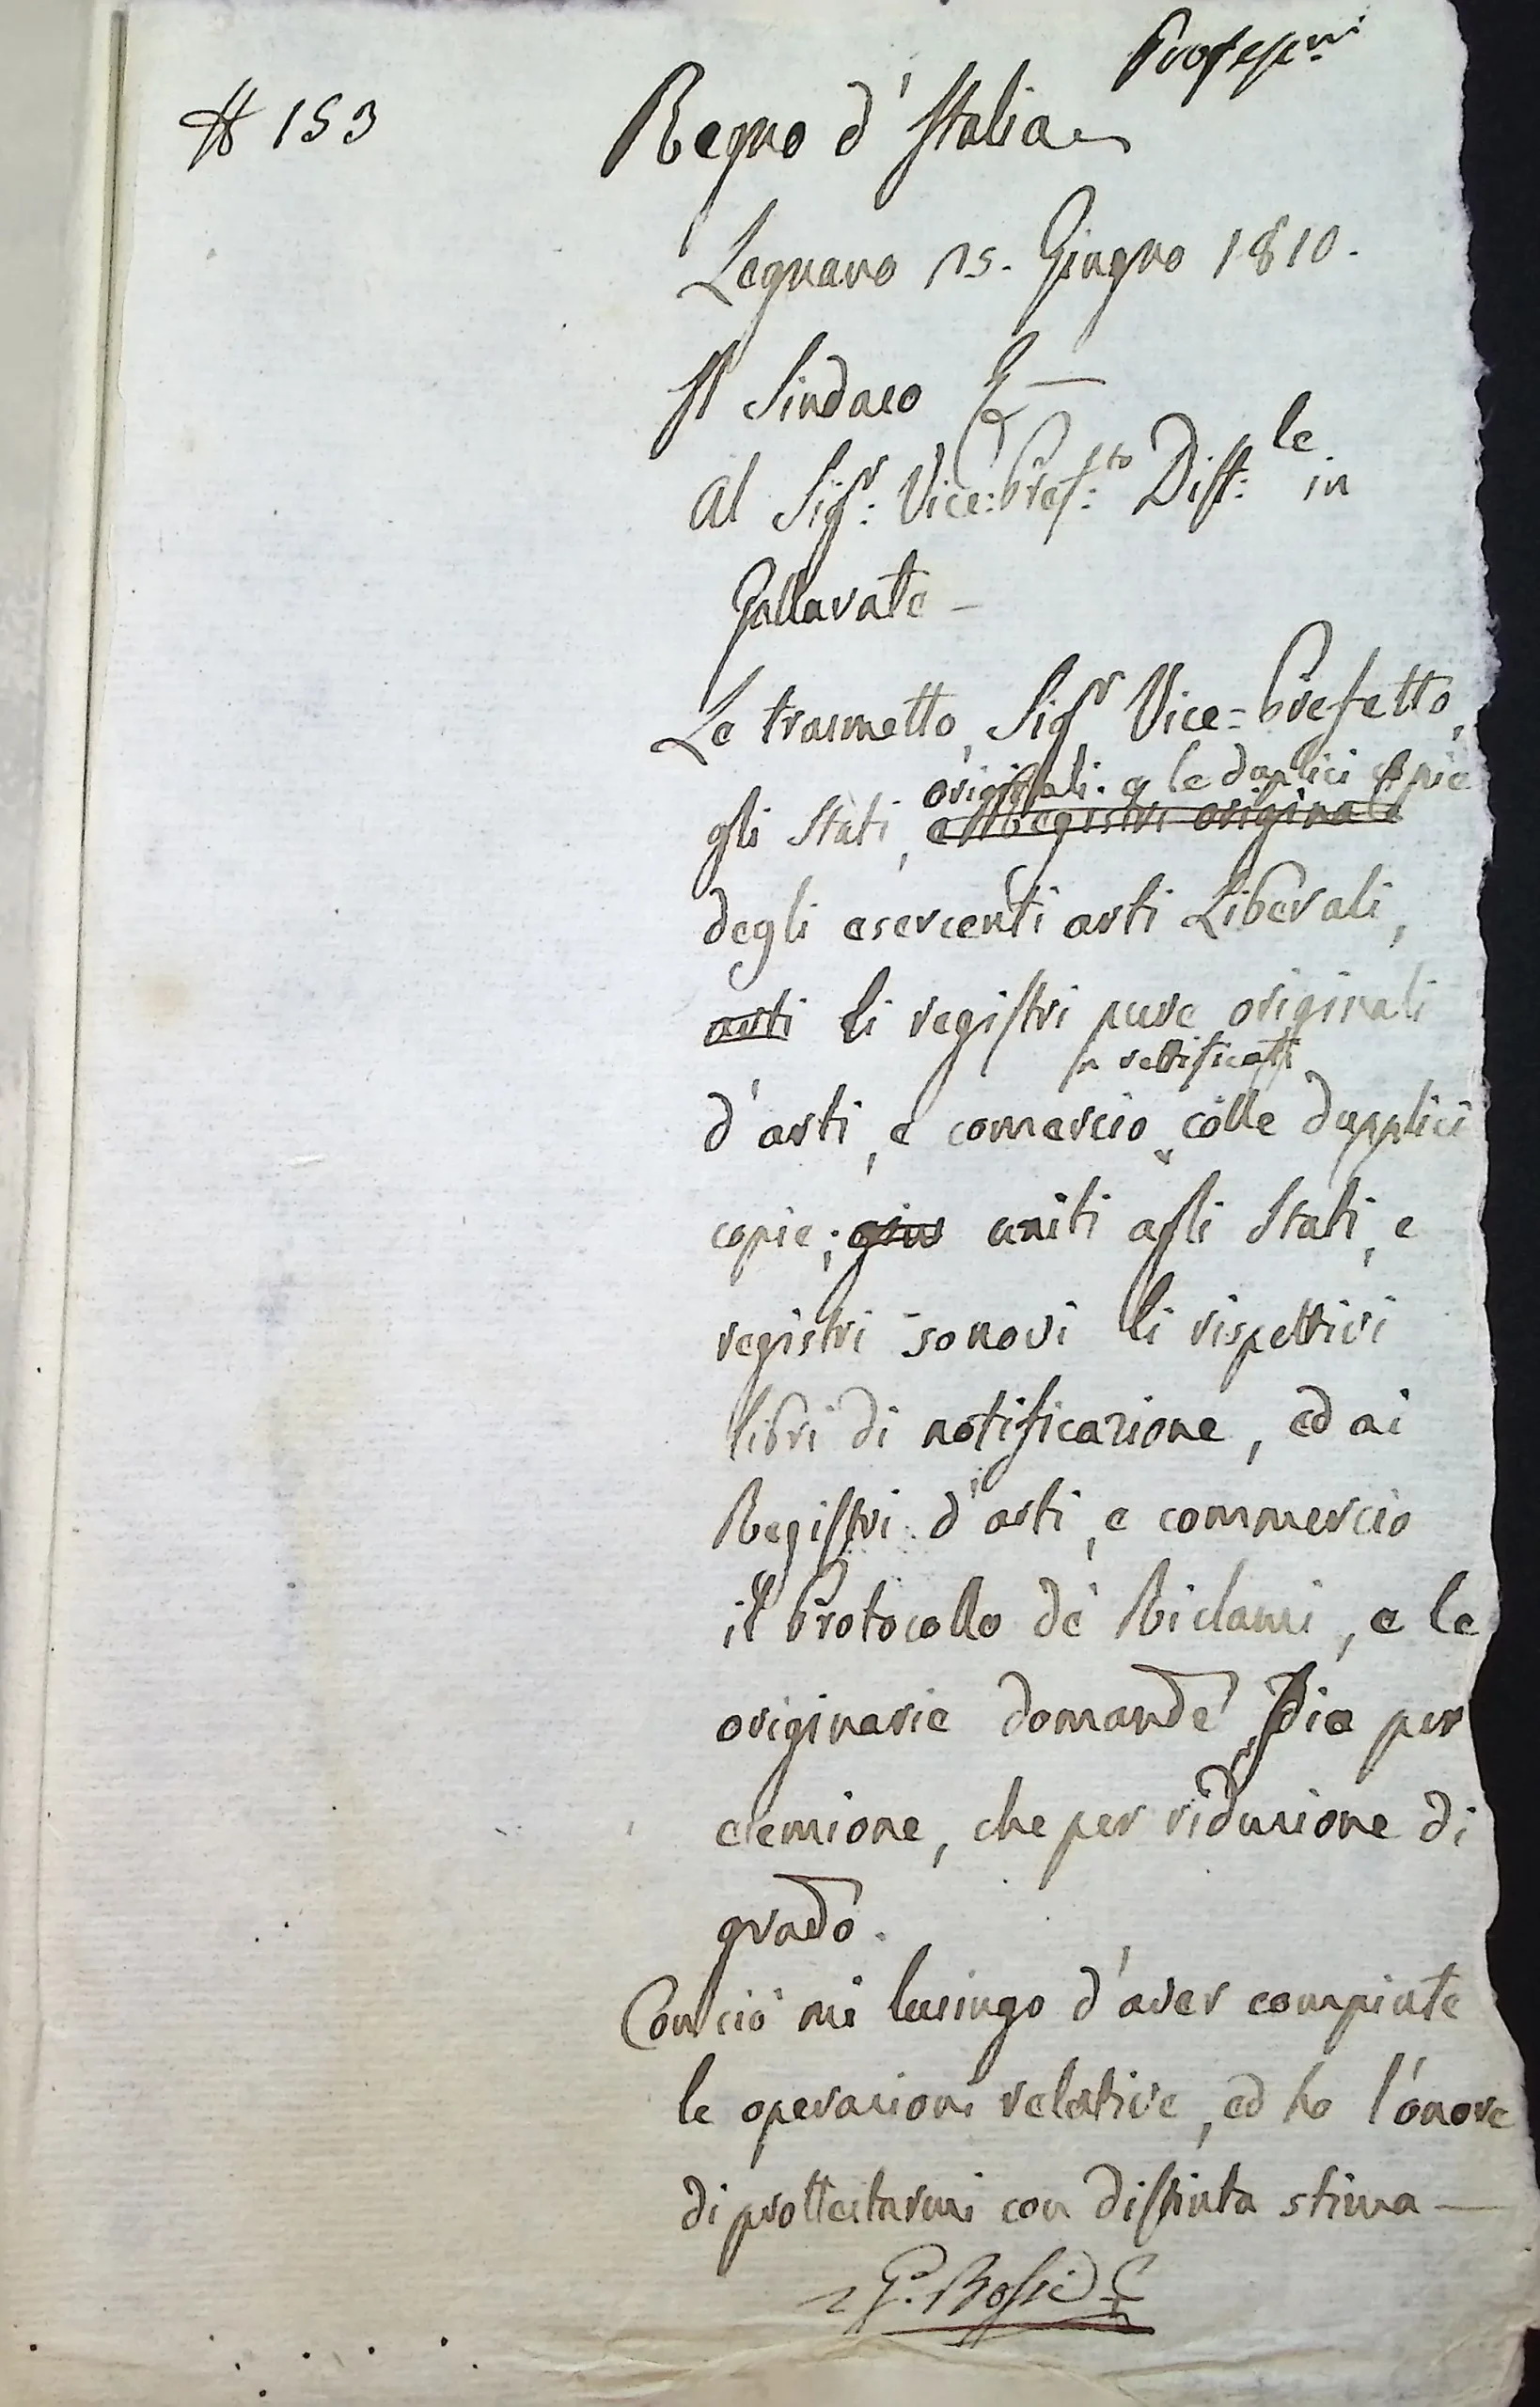 # 153
Regno d'Italia
Legnano 15. Giugno 1810.
Il Sindaco
Al Sigr: Vice:Prefto: Distle: in
Gallarate -
Le trasmetto, Sigr Vice=Prefetto,
originali. e le duplici copie
gli Stati, e Registri originali
degli esercenti arti Liberali,
arti li registri pure originali
rettificati
d'arti, e comercio colle dupplici
copie; uniti agli Stati, e
registri sonovi li rispettivi
libri di notificazione, ed ai
Registri d'arti, e commercio
il Protocollo de' Riclami, e le
originarie domande, sie per
esenzione, che per riduzione di
grado.
Con ciò mi lusingo d'aver compiute
le operazioni relative, ed ho l'onore
di prottestarmi con distinta stima —
G. Bossi